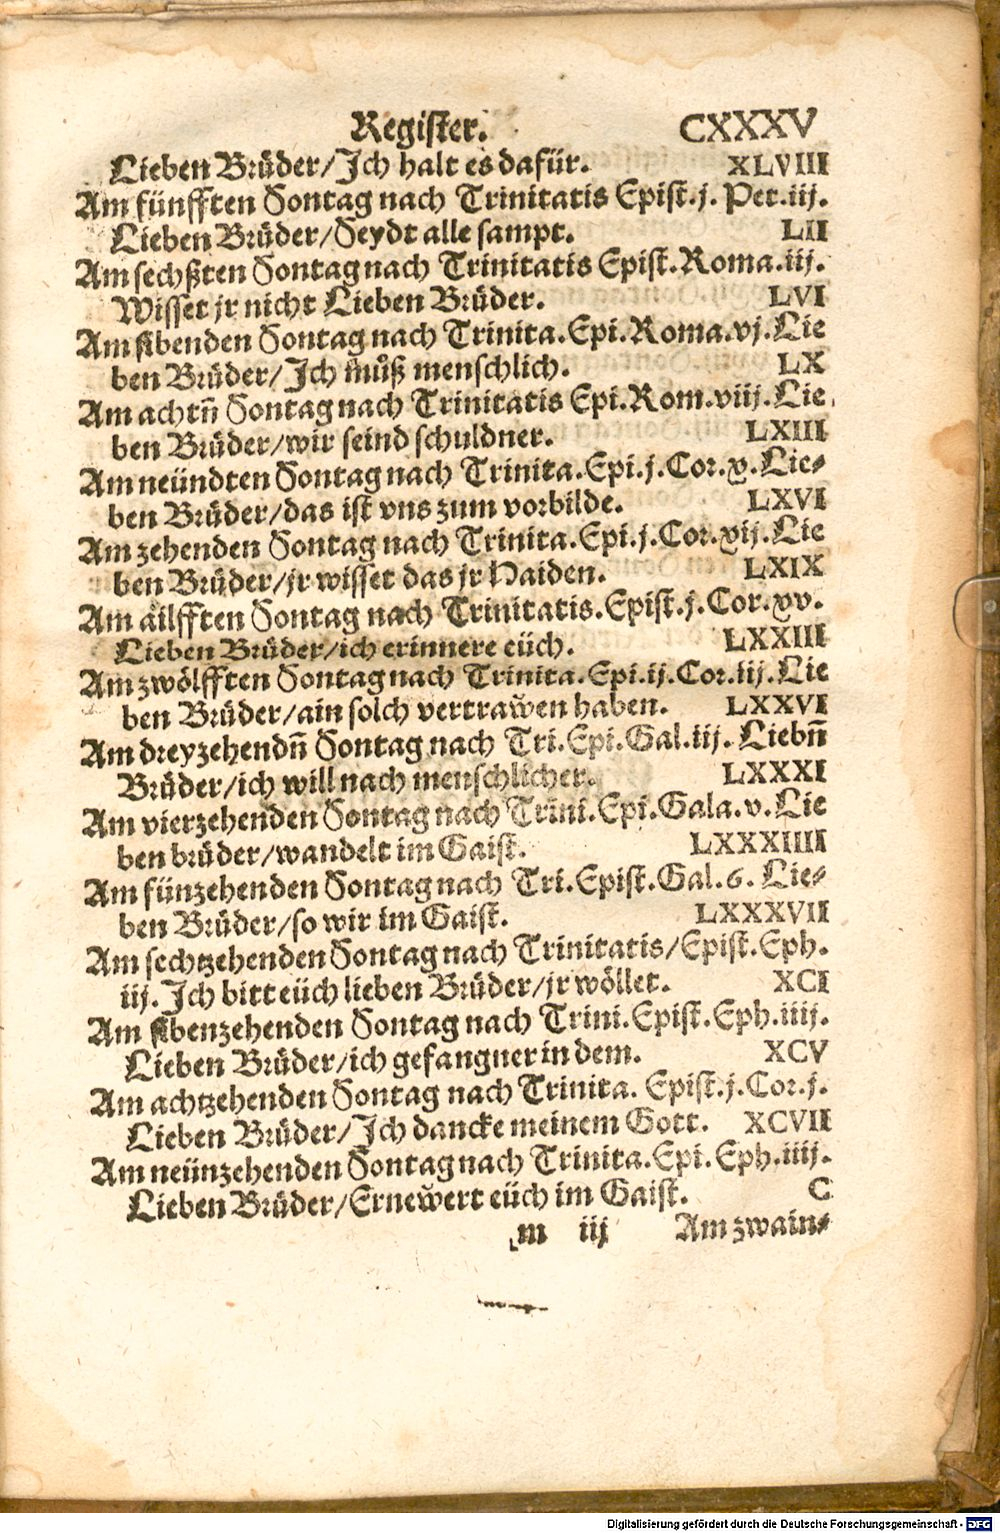 Register. CXXXV
Lieben Brüder/Ich halt es dafür. XLVIII
Am fünfften Sontag nach Trinitatis Epist.j. Pet.iij.
Lieben Brüder/Seydt alle sampt. LII
Am sechßten Sontag nach Trinitatis Epist.Roma.iij.
Wisset jr nicht Lieben Brüder. LVI
Am sibenden Sontag nach Trinita.Epi.Roma.vj.Lie
ben Brüder/Ich můß menschlich. LX
Am achtñ Sontag nach Trinitatis Epi.Rom.viij.Lie
ben Brüder/wir seind schuldner. LXIII
Am neündten Sontag nach Trinita.Epi.j.Cor.x.Lie-
ben Brüder/das ist vns zum vorbilde. LXVI
Am zehenden Sontag nach Trinita.Epi.j.Cor.xij.Lie
ben Brüder/jr wisset das jr Haiden. LXIX
Am äilfften Sontag nach Trinitatis.Epist.j.Cor.xv.
Lieben Brüder/ich erinnere eüch. LXXIII
Am zwölfften Sontag nach Trinita.Epi.ij.Cor.iij.Lie
ben Brüder/ain solch vertrawen haben. LXXVI
Am dreyzehendñ Sontag nach Tri.Epi.Gal.iij. Liebñ
Brüder/ich will nach menschlicher. LXXXI
Am vierzehenden Sontag nach Trini.Epi.Gala.v.Lie
ben brüder/wandelt im Gaist. LXXXIIII
Am fünzehenden Sontag nach Tri.Epist.Gal.6. Lie-
ben Brüder/so wir im Gaist. LXXXVII
Am sechtzehenden Sontag nach Trinitatis/Epist.Eph.
iij. Ich bitt eüch lieben Brüder/jr wöllet. XCI
Am sibenzehenden Sontag nach Trini.Epist.Eph.iiij.
Lieben Brüder/ich gefangner in dem. XCV
Am achtzehenden Sontag nach Trinita. Epist.j.Cor.j.
Lieben Brüder/Ich dancke meinem Gott. XCVII
Am neünzehenden Sontag nach Trinita.Epi.Eph.iiij.
Lieben Brüder/Ernewert eüch im Gaist. C
m iij Am zwain-
Digitalisierung gefördert durch die Deutsche Forschungsgemeinschaft - DFG